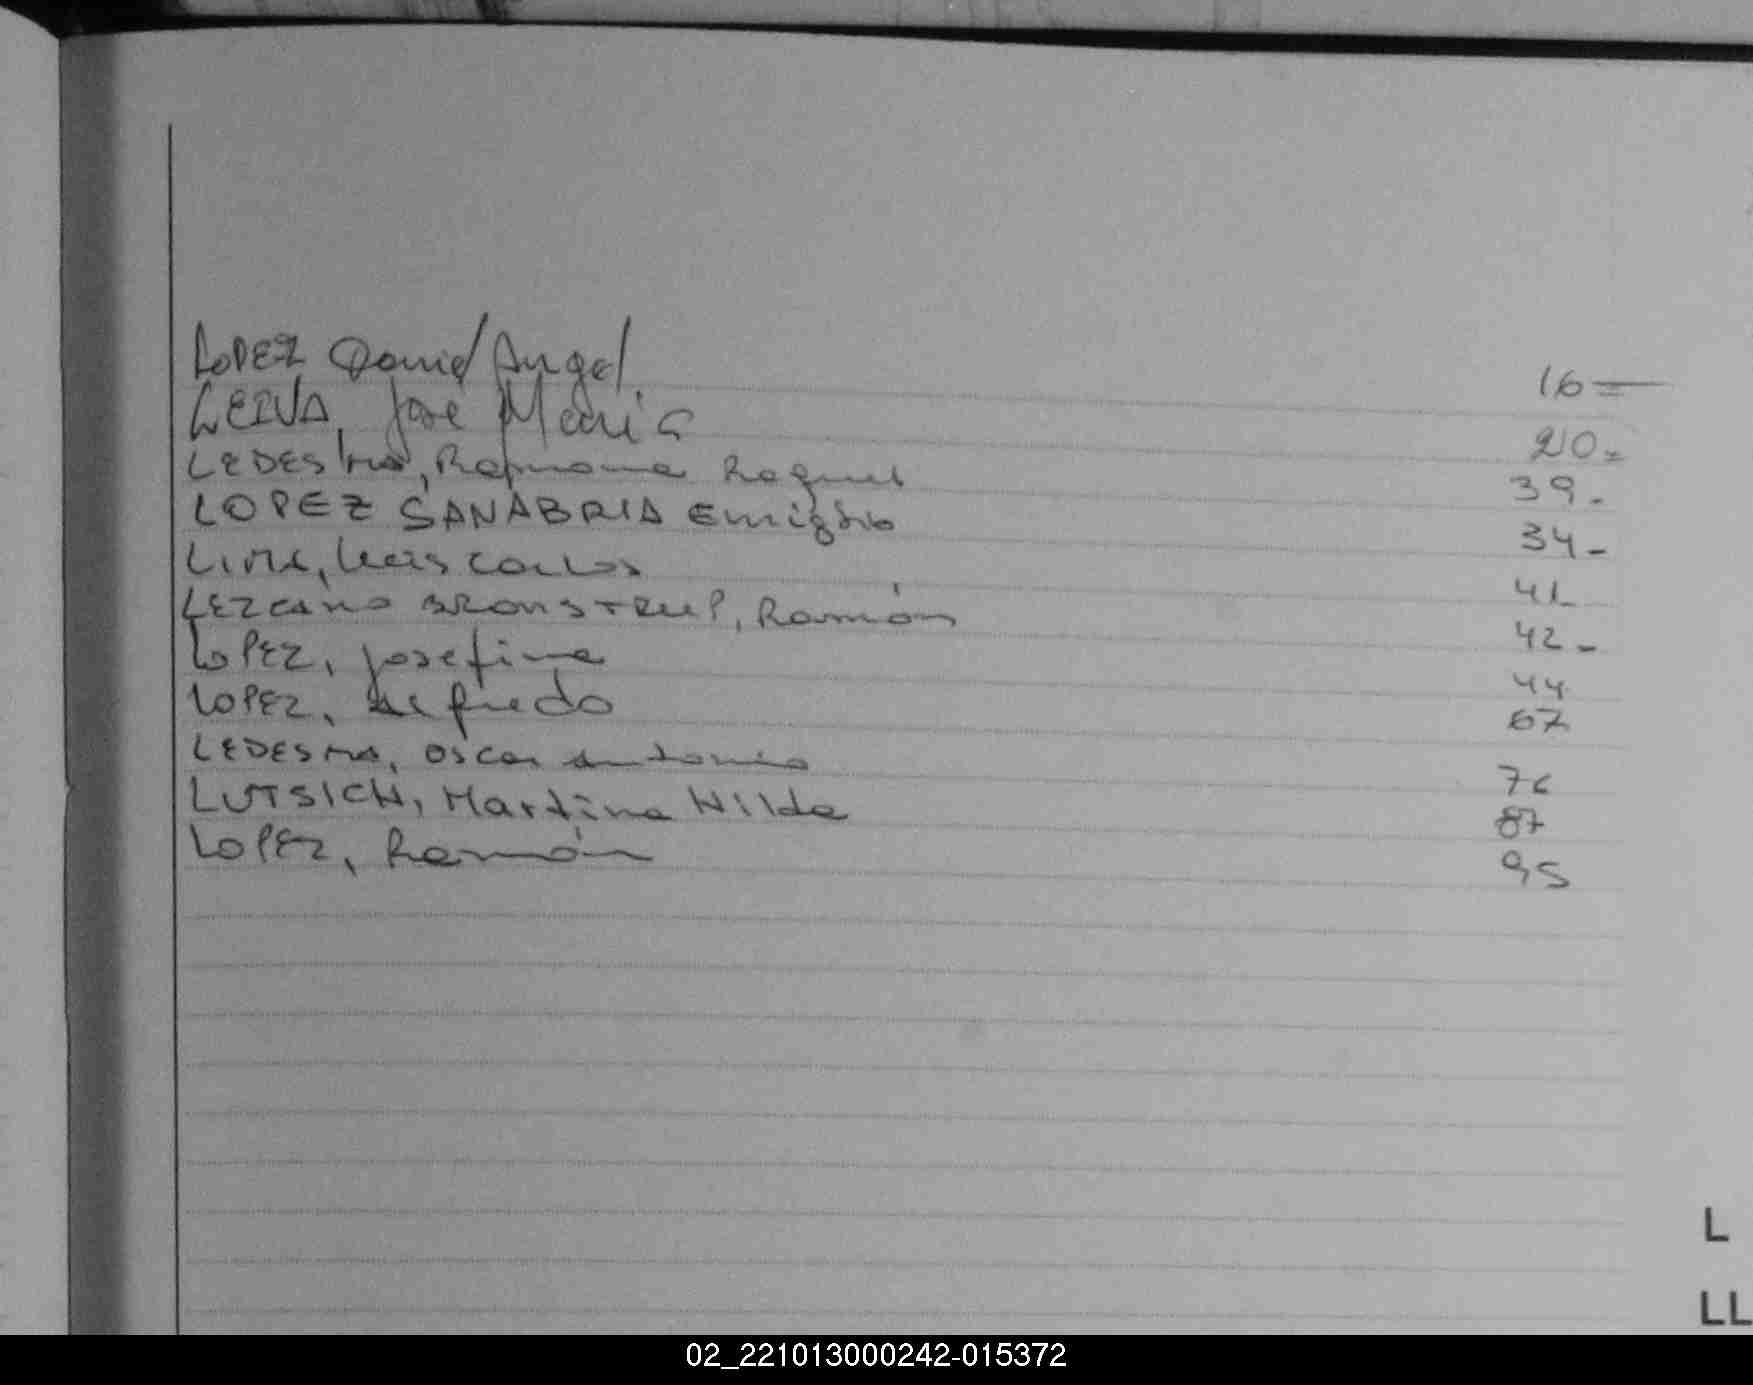 LOPEZ David Angel 16=
LEIVA, José Maria 20=
LEDESMA, Ramona Raquel 39-
LOPEZ SANABRIA Emigdio 34-
LIMA, Luis Carlos 41
LEZCANO BRONSTRUP, Ramón 42-
LOPEZ, Josefina 44
LOPEZ, Alfredo 67
LEDESMA, Oscar Antonio 76
LUTSICH, Martina Nilda 87
LOPEZ, Ramón 95
L
LL
02_221013000242-015372